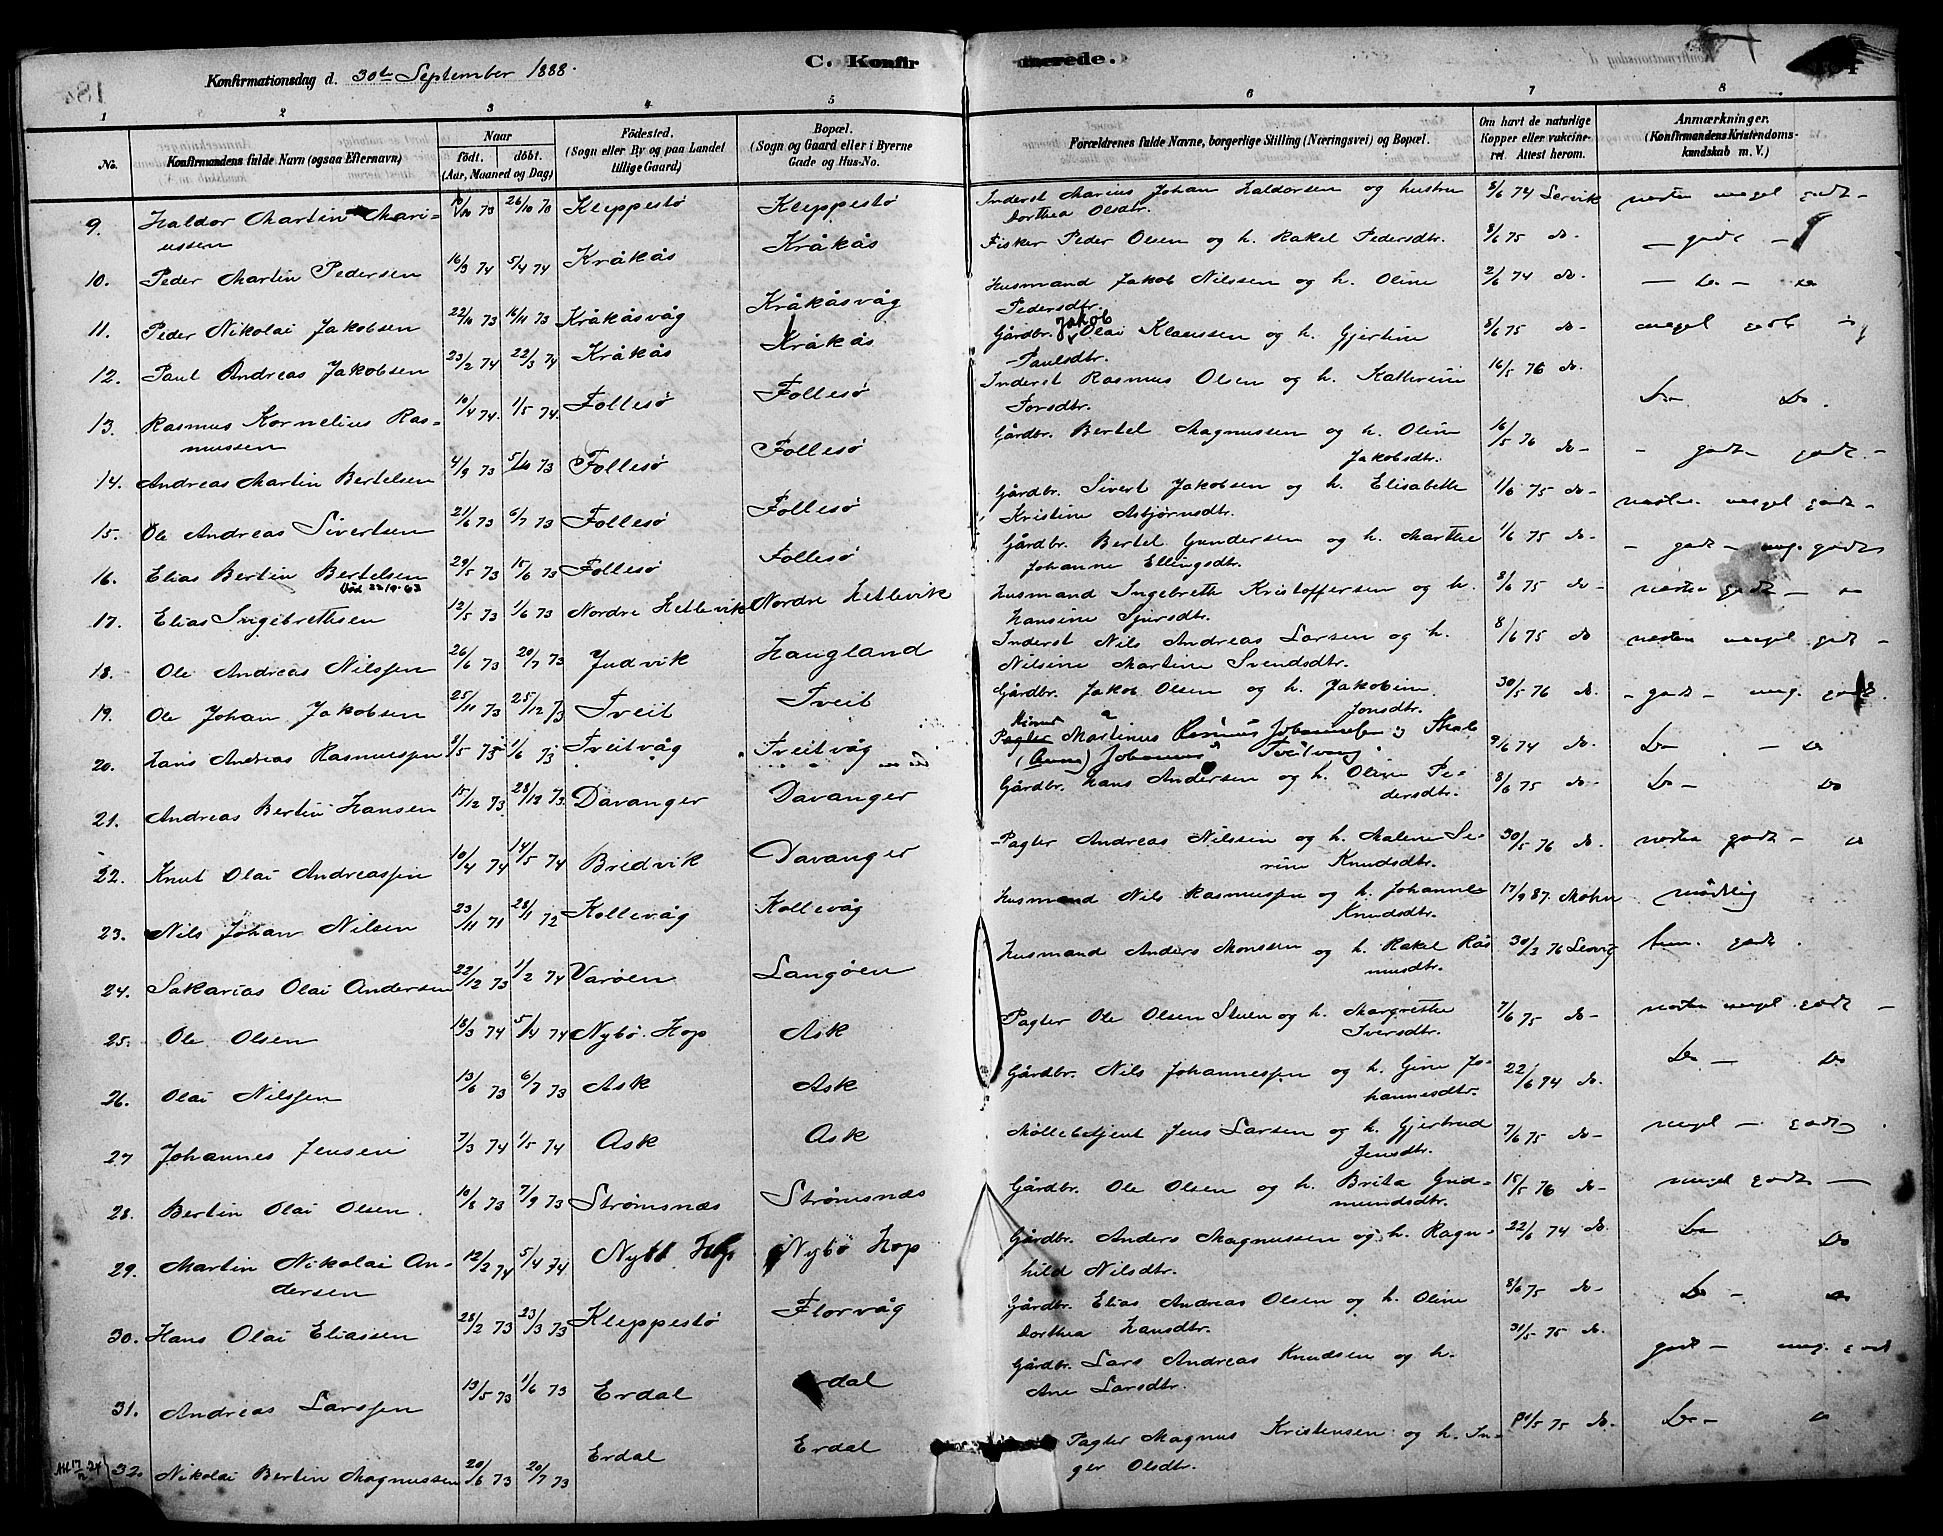 Konfirmationsdag d. 30te September 1888.
C. Konfirmerede.
1 2 3 4 5 6 7 8
No.
Konfirmandens fulde Navn (ogsaa Efternavn)
Naar
født. døbt.
(Aar, Maaned og Dag)
Fødested.
(Sogn eller By og paa Landet
tillige Gaard)
Bopæl.
(Sogn og Gaard eller i Byerne
Gade og Hus-No.
Forældrenes fulde Navne, borgerlige Stilling (Næringsvei) og Bopæl.
Om havt de naturlige
Kopper eller vakcine-
ret. Attest herom.
Anmærkninger.
(Konfirmandens Kristendoms-
kundskab m. V.)
9. Haldor Martin Mari- 26/10 73 Kleppestø Kleppestø Inderst Marius Johan Haldorsen og hustru 8/6 74 Lervik næsten meget godt -
ussen Dorthea Olsdtr.
10. Peder Martin Pedersen 16/3 74 5/4 74 Kråkås Kråkås Fisker Peder Olsen og h. Rakel Pedersdtr. 8/6 75 do. - godt -
11. Peder Nikolai Jakobsen 22/10 73 16/11 73 Kråkåsvåg Kråkåsvåg Husmand Jakob Nilssen og h. Oline 2/6 74 do. - Do - Do
Pedersdtr.
12. Paul Andreas Jakobsen 23/2 74 22/3 74 Kråkås Kråkås Gårdbr. Jakob Olai Klaussen og h. Gjertine 8/6 75 do - meget godt -
Paulsdtr.
13. Rasmus Kornelius Ras- 10/4 74. 1/5 74. Follesø Follesø Inderst Rasmus Olsen og h. Kathrine 16/5 76 do. Do Do.
mussen
14. Andreas Martin Bertelsen 4/9 73 5/10 73 Follesø Follesø Gårdbr. Bertel Magnussen og h. Oline 16/5 76 do - - godt - godt. -
Jakobsdtr.
15. Ole Andreas Sivertsen 21/6 73 6/7 73 Follesø Follesø Gårdbr. Sivert Jakobsen og h. Elisabeth 1/6 75 do - næsten meget godt -
Kristine Asbjørnsdtr.
16. Elias Bertin Bertelsen 29/5 73 15/6 73 Follesø Follesø Gårdbr. Bertel Gundersen og h. Marthe 1/6 75 do - - godt - meg. godt
Johanne Ellingsdtr.
Død 22/9-63
17. Elias Ingebrethsen 12/5 73 1/6 73 Nordre Hetlevik Nordre Hetlevik Husmand Ingebreth Kristoffersen og h. 8/6 75 do - næsten godt -
Hansine Sjursdtr.
18. Ole Andreas Nilssen 26/6 73 20/7 73 Judvik Haugland Inderst Nils Andreas Larsen og h. 8/6 75 do næsten meget godt -
Nilsine Martine Svendsdtr.
19. Ole Johan Jakobsen 25/11 73 25/12 73 Tveit Tveit Gårdbr. Jakob Olsen og h. Jakobine 30/5 76 do. - godt - meg. godt.
Jonsdtr.
20. Hans Andreas Rasmussen 1/6 73 Tveitvåg Tveitvåg Pagter Martinus Rasmus Johannessen 9/6 74 do. Do - Do
(Anna) Johannesd Tveitvåg.
21. Andreas Bertin Hansen 15/12 73 28/12 73. Davanger Davanger Gårdbr. Hans Andersen og h. Oline Pe- 8/6 75 do - Do - Do
dersdtr.
22. Knut Olai Andreassen 10/4 74 14/5 74 Bredvik Davanger Pagter Andreas Nilssen og h. Malene Se- 30/5 76 do. næsten godt -
rine Knudsdtr.
23. Nils Johan Nilsen 23/11 71 28/1 72 Kollevåg Kollevåg Husmand Nils Rasmussen og h. Johanne 17/9 87. Mohn nødtlig
Knudsdtr.
24. Sakarias Olai Andersen 22/12 73 1/2 74 Varøen Langøen Husmand Anders Monssen og h. Rakel Ras 76 godt.
musdtr.
25. Ole Olsen 18/3 74 5/4 74 Nybø. Hop Ask Pagter Ole Olsen Stuen og h. Margrethe 7/6 75 do - næsten meget godt -
Iversdtr.
26. Olai Nilssen 13/6 73 6/7 73 Ask Ask Gårdbr. Nils Johannessen og h. Gine Jo- 22/6 74 do. Do - Do
hannesdtr.
27 Johannes Jensen 7/3 74 1/5 74 Ask Ask Møllebetjent Jens Larsen og h. Gjertrud 7/6 75 do - meget - godt
Jensdtr.
28. Bertin Olai Olsen. 10/8 73 7/9 73 Strømsnæs Strømsnæs Gårdbr. Ole Olsen og h. Brita Gud- 15/5 76 do - meget godt -
mundsdtr.
29. Martin Nikolai An- 12/2 74 5/4 74 Nybø Hop Nybø Hop Gårdbr. Anders Magnussen og h. Ragn- 22/6 74 do. Do Do
dersen hild Nilsdtr.
30. Hans Olai Eliassen 28/2 73 23/3 73 Kleppestø Florvåg Gårdbr. Elias Andreas Olsen og h. Oline 8/6 75 do. Do - Do
Dorthea Hansdtr.
31. Andreas Larssen 13/5 73 1/6 73 Erdal Erdal Gårdbr. Lars Andreas Knudsen og h. 31/5 75 do. godt - meg. godt
Ane Larsdtr.
32. Nikolai Bertin Magnussen 20/6 73 20/7 73 Erdal Erdal Pagter Magnus Kristensen og h. In- 31/5 75 do. Do -
ger Olsdtr.